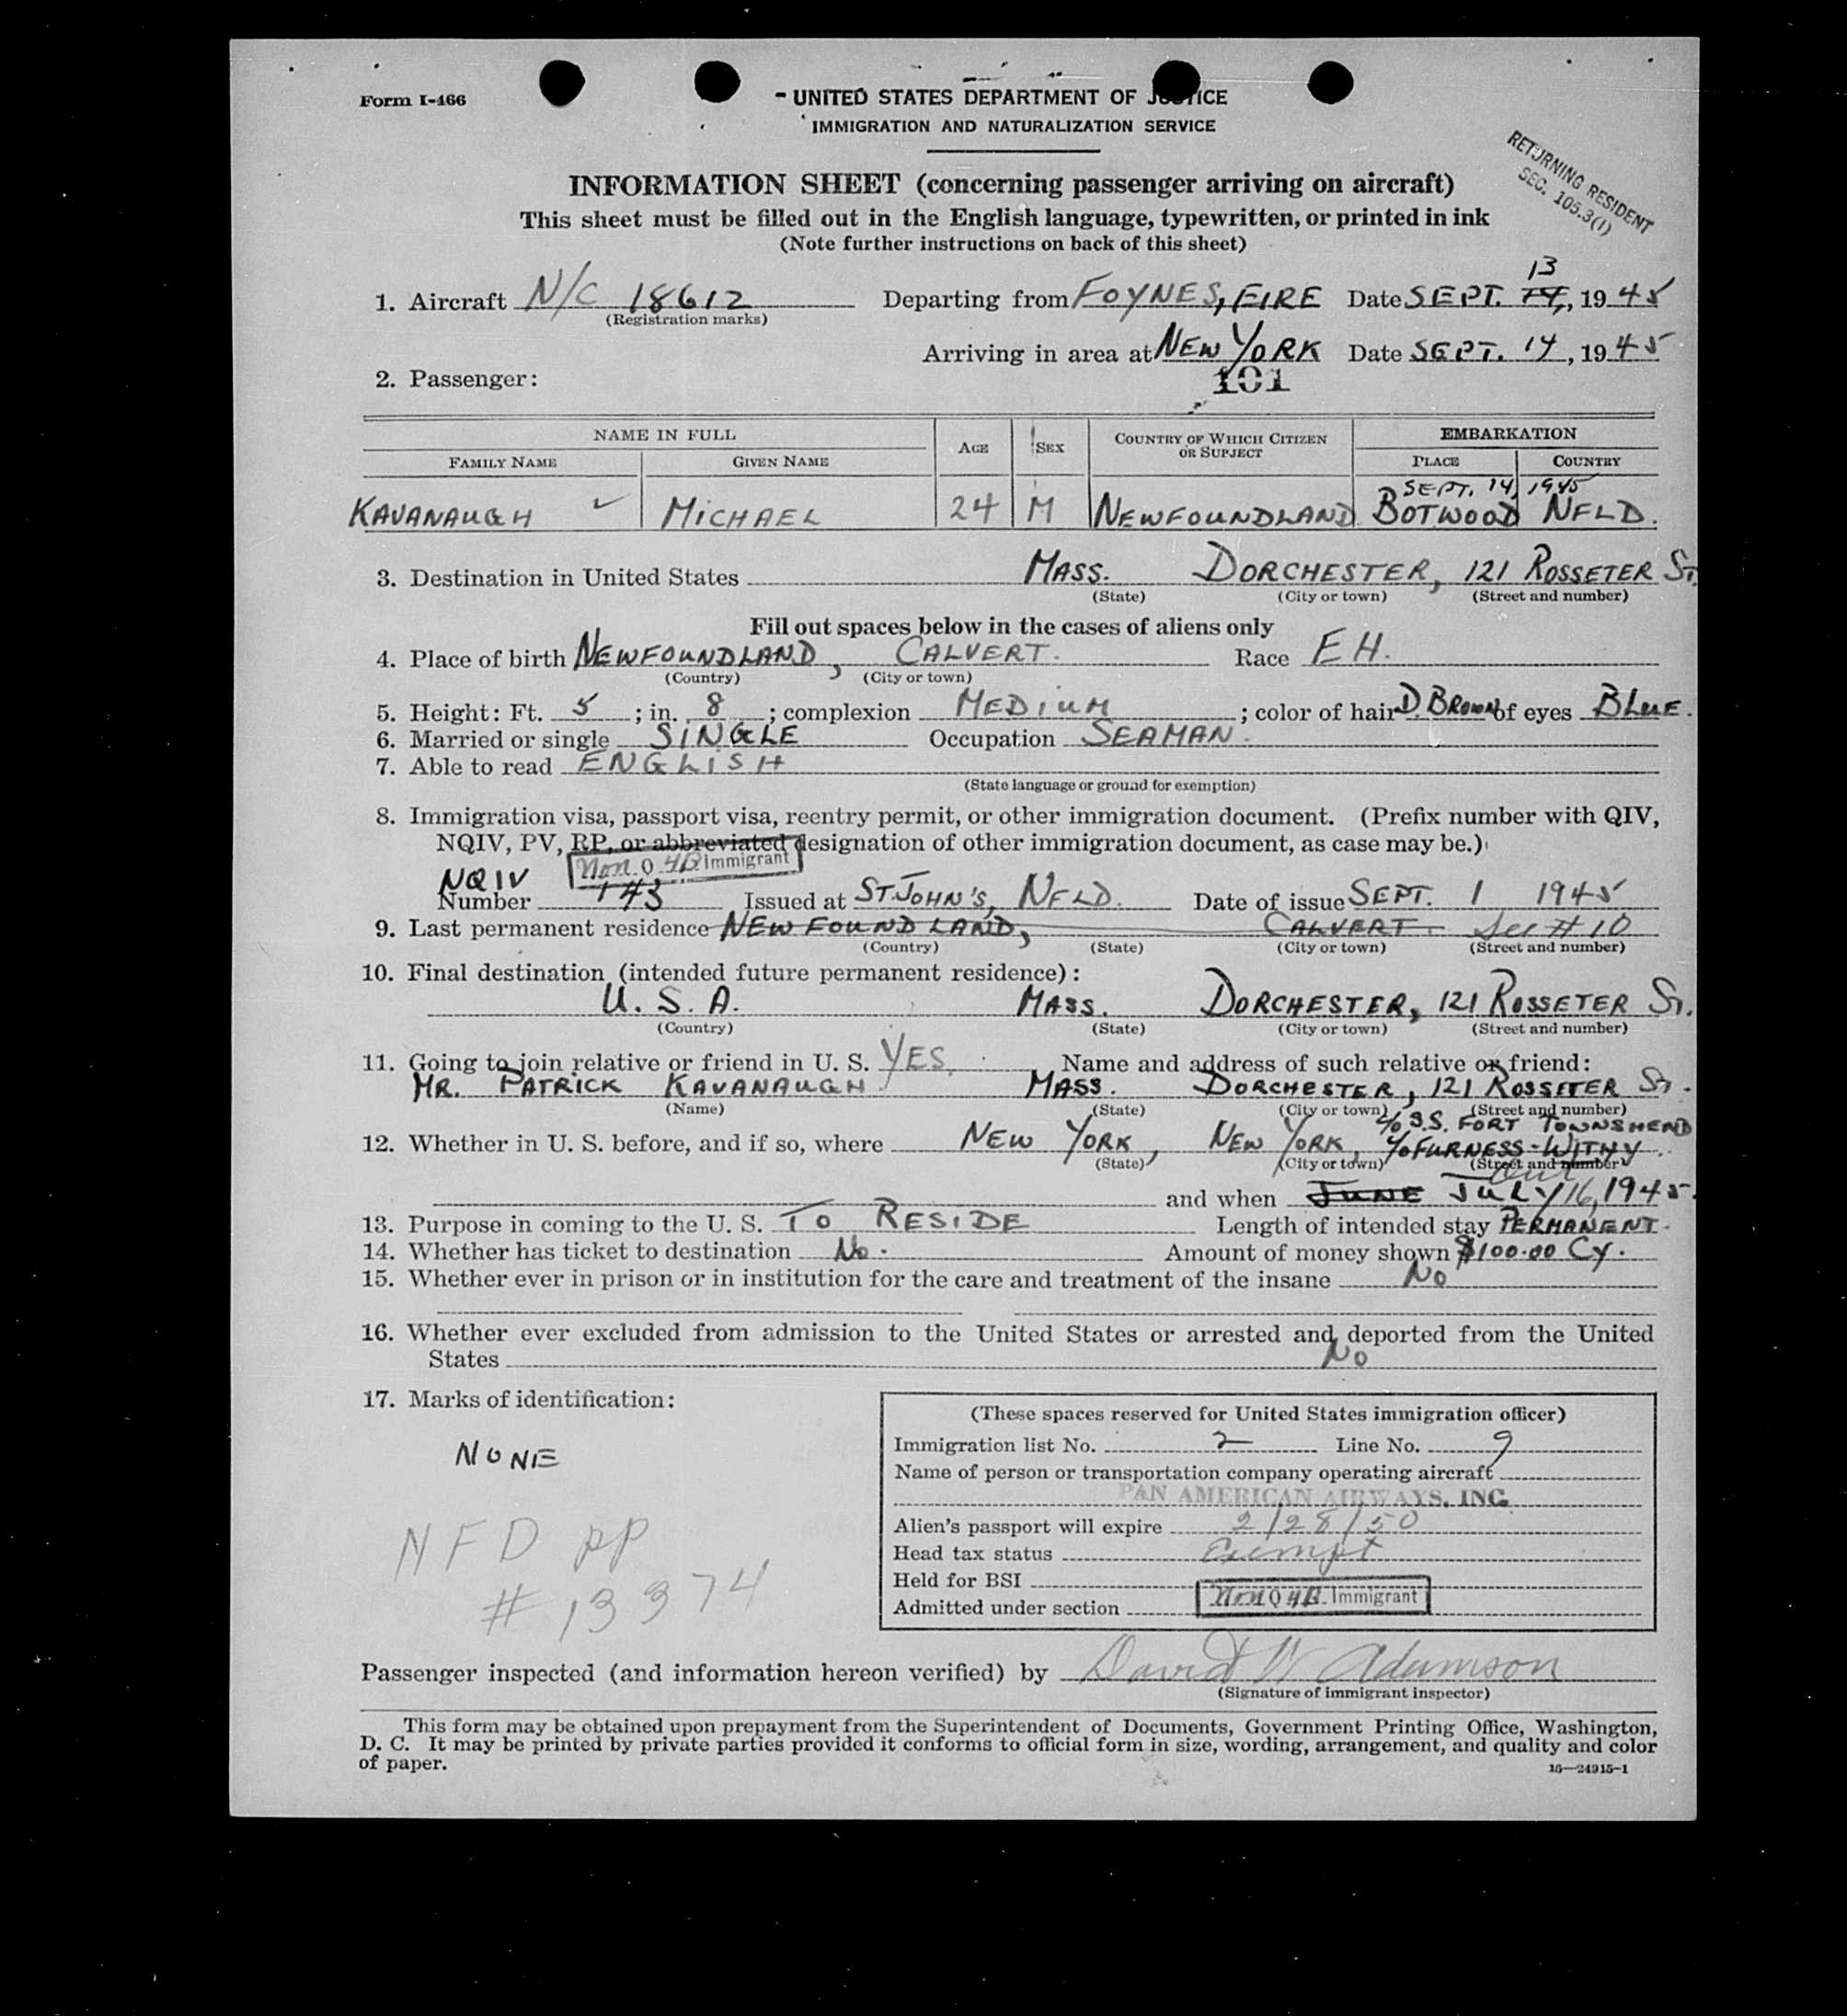 Form I-466
UNITED STATES DEPARTMENT OF JUSTICE
IMMIGRATION AND NATURALIZATION SERVICE
RETURNING RESIDENT
SEC. 105.3(1)
INFORMATION SHEET (concerning passenger arriving on aircraft)
This sheet must be filled out in the English language, typewritten, or printed in ink
(Note further instructions on back of this sheet)
13
1. Aircraft N/C 18612 Departing from FOYNES, EIRE Date SEPT. 14, 1945
(Registration marks)
Arriving in area at NEW YORK Date SEPT. 14, 1945
2. Passenger: 101
NAME IN FULL AGE SEX COUNTRY OF WHICH CITIZEN OR SUBJECT EMBARKATION
FAMILY NAME GIVEN NAME PLACE COUNTRY
SEPT. 14, 1945
KAVANAUGH ✓ MICHAEL 24 M NEWFOUNDLAND BOTWOOD NFLD.
3. Destination in United States MASS. DORCHESTER, 121 ROSSETER ST.
(State) (City or town) (Street and number)
Fill out spaces below in the cases of aliens only
4. Place of birth NEWFOUNDLAND, CALVERT. Race EH.
(Country) (City or town)
5. Height: Ft. 5; in. 8; complexion MEDIUM; color of hair D. BROWN of eyes BLUE.
6. Married or single SINGLE Occupation SEAMAN.
7. Able to read ENGLISH
(State language or ground for exemption)
8. Immigration visa, passport visa, reentry permit, or other immigration document. (Prefix number with QIV,
NQIV, PV, RP, or abbreviated designation of other immigration document, as case may be.)
NQIV Non Q 4B Immigrant
Number 143 Issued at ST. JOHN'S, NFLD. Date of issue SEPT. 1 1945
9. Last permanent residence NEWFOUNDLAND, CALVERT. See #10
(Country) (State) (City or town) (Street and number)
10. Final destination (intended future permanent residence):
U. S. A. MASS. DORCHESTER, 121 ROSSETER ST.
(Country) (State) (City or town) (Street and number)
11. Going to join relative or friend in U. S. YES. Name and address of such relative or friend:
MR. PATRICK KAVANAUGH MASS. DORCHESTER, 121 ROSSETER ST.
(Name) (State) (City or town) (Street and number)
c/o S.S. FORT TOWNSHEND
12. Whether in U. S. before, and if so, where NEW YORK, NEW YORK, c/o FURNESS-WITHY
(State) (City or town) (Street and number)
and when JUNE JULY 16, 1945.
13. Purpose in coming to the U. S. TO RESIDE Length of intended stay PERMANENT.
14. Whether has ticket to destination No. Amount of money shown $100.00 Cy.
15. Whether ever in prison or in institution for the care and treatment of the insane No
16. Whether ever excluded from admission to the United States or arrested and deported from the United
States No
17. Marks of identification:
NONE
NFD PP
# 13374
(These spaces reserved for United States immigration officer)
Immigration list No. 2 Line No. 9
Name of person or transportation company operating aircraft
PAN AMERICAN AIRWAYS, INC.
Alien's passport will expire 2/28/50
Head tax status Exempt
Held for BSI
Admitted under section Non Q 4B Immigrant
Passenger inspected (and information hereon verified) by David W Adamson
(Signature of immigrant inspector)
This form may be obtained upon prepayment from the Superintendent of Documents, Government Printing Office, Washington,
D. C. It may be printed by private parties provided it conforms to official form in size, wording, arrangement, and quality and color
of paper.
16—24915-1